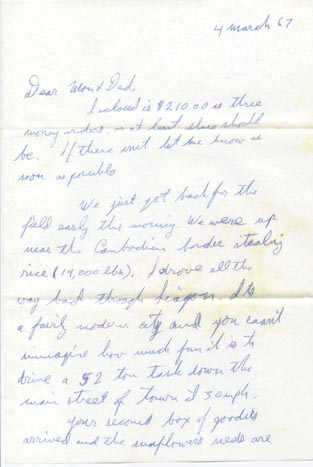 4 March 67
Dear Mom & Dad,
Inclosed is $210.00 is three
money orders, or at least there should
be. If there isn't let me know as
soon as possible
We just got back for the
field early this morning. We were up
near the Cambodian border stealing
rice (14,000 lbs). I drove all the
way back through Siagon. Its
a fairly modern city and you can't
immagine how much fun it is to
drive a 52 ton tank down the
main street of town at 30 mph.
Your second box of goodies
arrived and the sunflowers seeds are